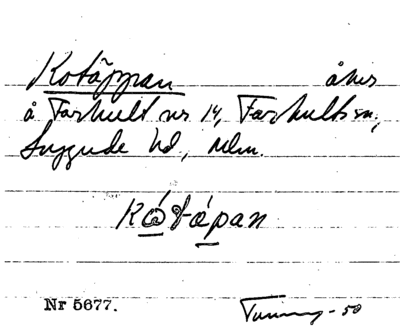 Kotäppan åker
å Farhult nr 14, Farhult sn,
Luggude hd, Mlm.
Kótápan
Nr 5677.